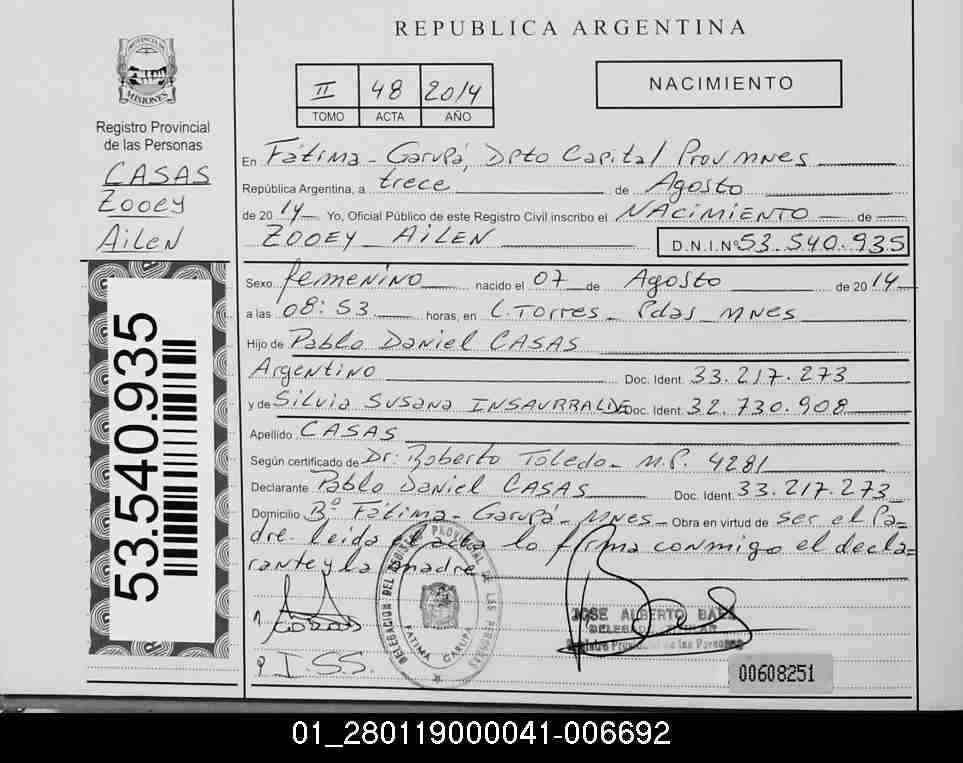 REPUBLICA ARGENTINA
PROVINCIA DE
MISIONES
Registro Provincial
de las Personas
CASAS
Zooey
AILEN
53.540.935
II 48 2014
TOMO ACTA AÑO
NACIMIENTO
En Fátima - Garupá, Dpto Capital Prov MNES
República Argentina, a trece de Agosto
de 2014 Yo, Oficial Público de este Registro Civil inscribo el NACIMIENTO de
ZOOEY AILEN D.N.I.Nº 53.540.935
Sexo femenino nacido el 07 de Agosto de 2014
a las 08:53 horas, en L. Torres - Pdas MNES
Hijo de Pablo Daniel CASAS
Argentino Doc. Ident. 33.217.273
y de Silvia Susana INSAURRALDE Doc. Ident. 32.730.908
Apellido CASAS
Según certificado de Dr: Roberto Toledo - M.P. 4281
Declarante Pablo Daniel CASAS Doc. Ident. 33.217.273
Domicilio Bº Fátima - Garupá - MNES - Obra en virtud de ser el Pa=
dre. leida el acta lo firma conmigo el decla=
rante y la madre
DELEGACION DEL REGISTRO PROVINCIAL DE LAS PERSONAS
FATIMA GARUPA
JOSE ALBERTO
DELEGADO TITULAR
Registro Provincial de las Personas
ISS.
00608251
01_280119000041-006692